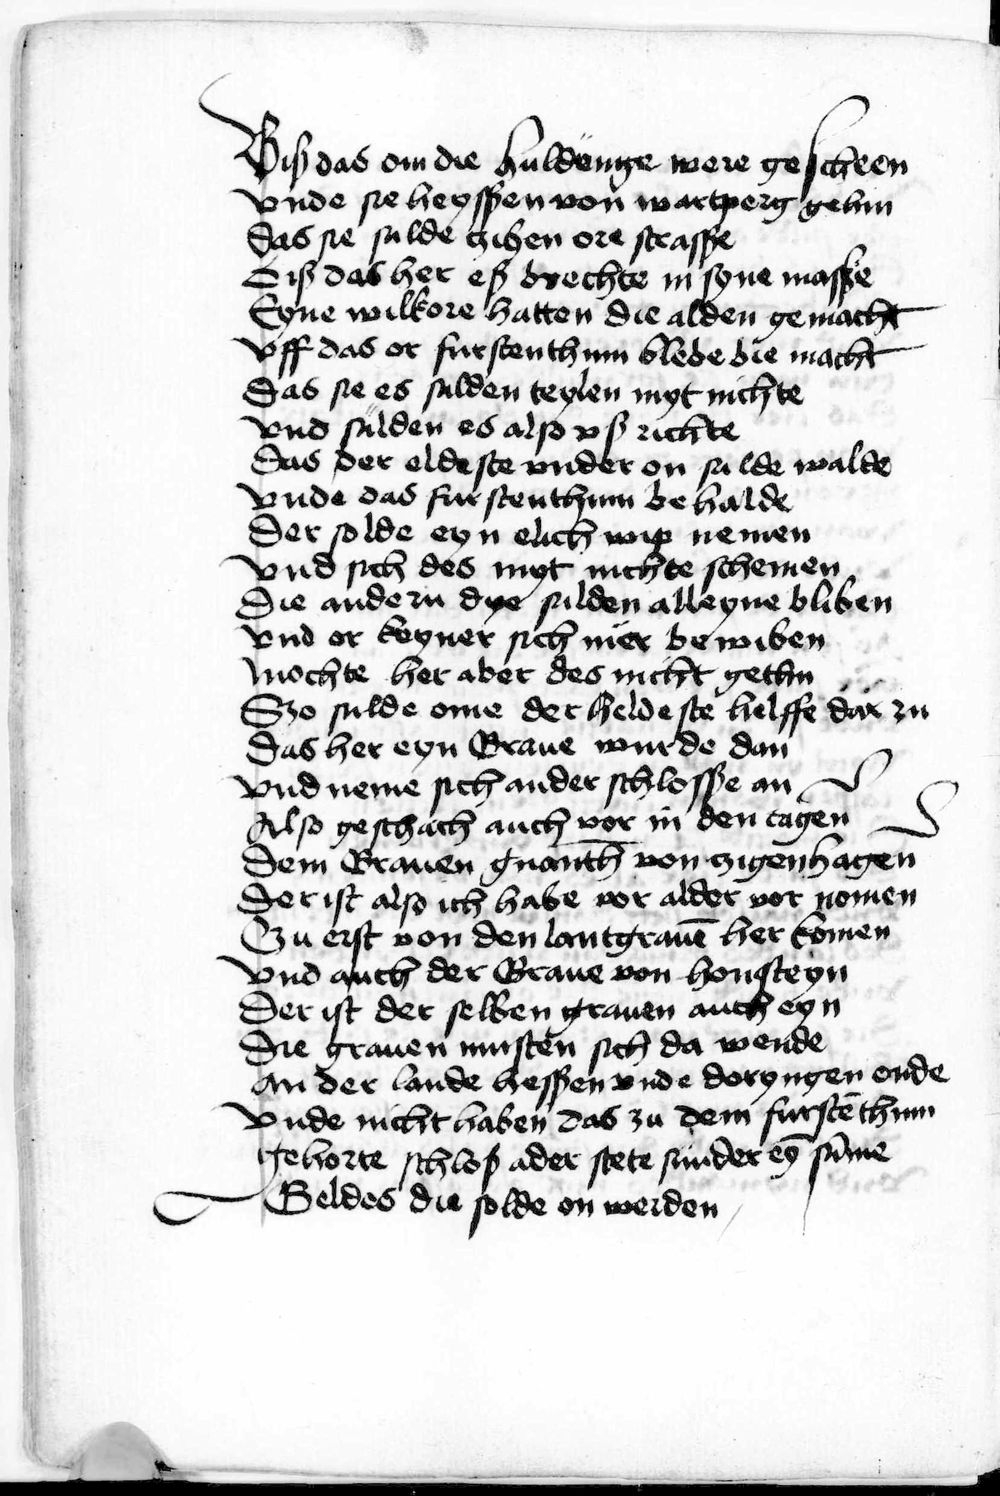 Biß das om die huldūnge were gescheen
vnde sie heyssen von wartperg gehin
das sie sulde zihen ore strasse
Biß das her eß brechte in syne masse
Eyne wilkore hatten die alden gemacht
vff das or furstenthum blebe bie macht
das sie es sulden teylen myt nichte
vnd sulden es also vß richte
das der eldeste vnder on sulde walde
vnde das furstenthum behalde
Der solde eyn elich wip nemen
vnd sich des myt nichte schemen
Die andern dye sulden alleyne bliben
vnd or keyner sich mer bewiben
mochte her aber des nicht gethin
Szo sulde ome der heldeste helffe dar zu
das her eyn Graue wurde dan
vnd neme sich ander schlosse an
Also geschach auch vor in den tagen
Dem Grauen von czigenhagen
Der ist also ich habe vor alder vor nomen
Szu erst von den lantgrauē her komen
vnd auch der Graue von honsteyn
Der ist der selben grauen auch eyn
die grauen musten sich da wende
an der lande hessen vnde doryngen ende
vnde nicht haben das zu dem furstēthum
gehorte schloß ader stete sunder eȳ sūme
Geldes die solde on werden